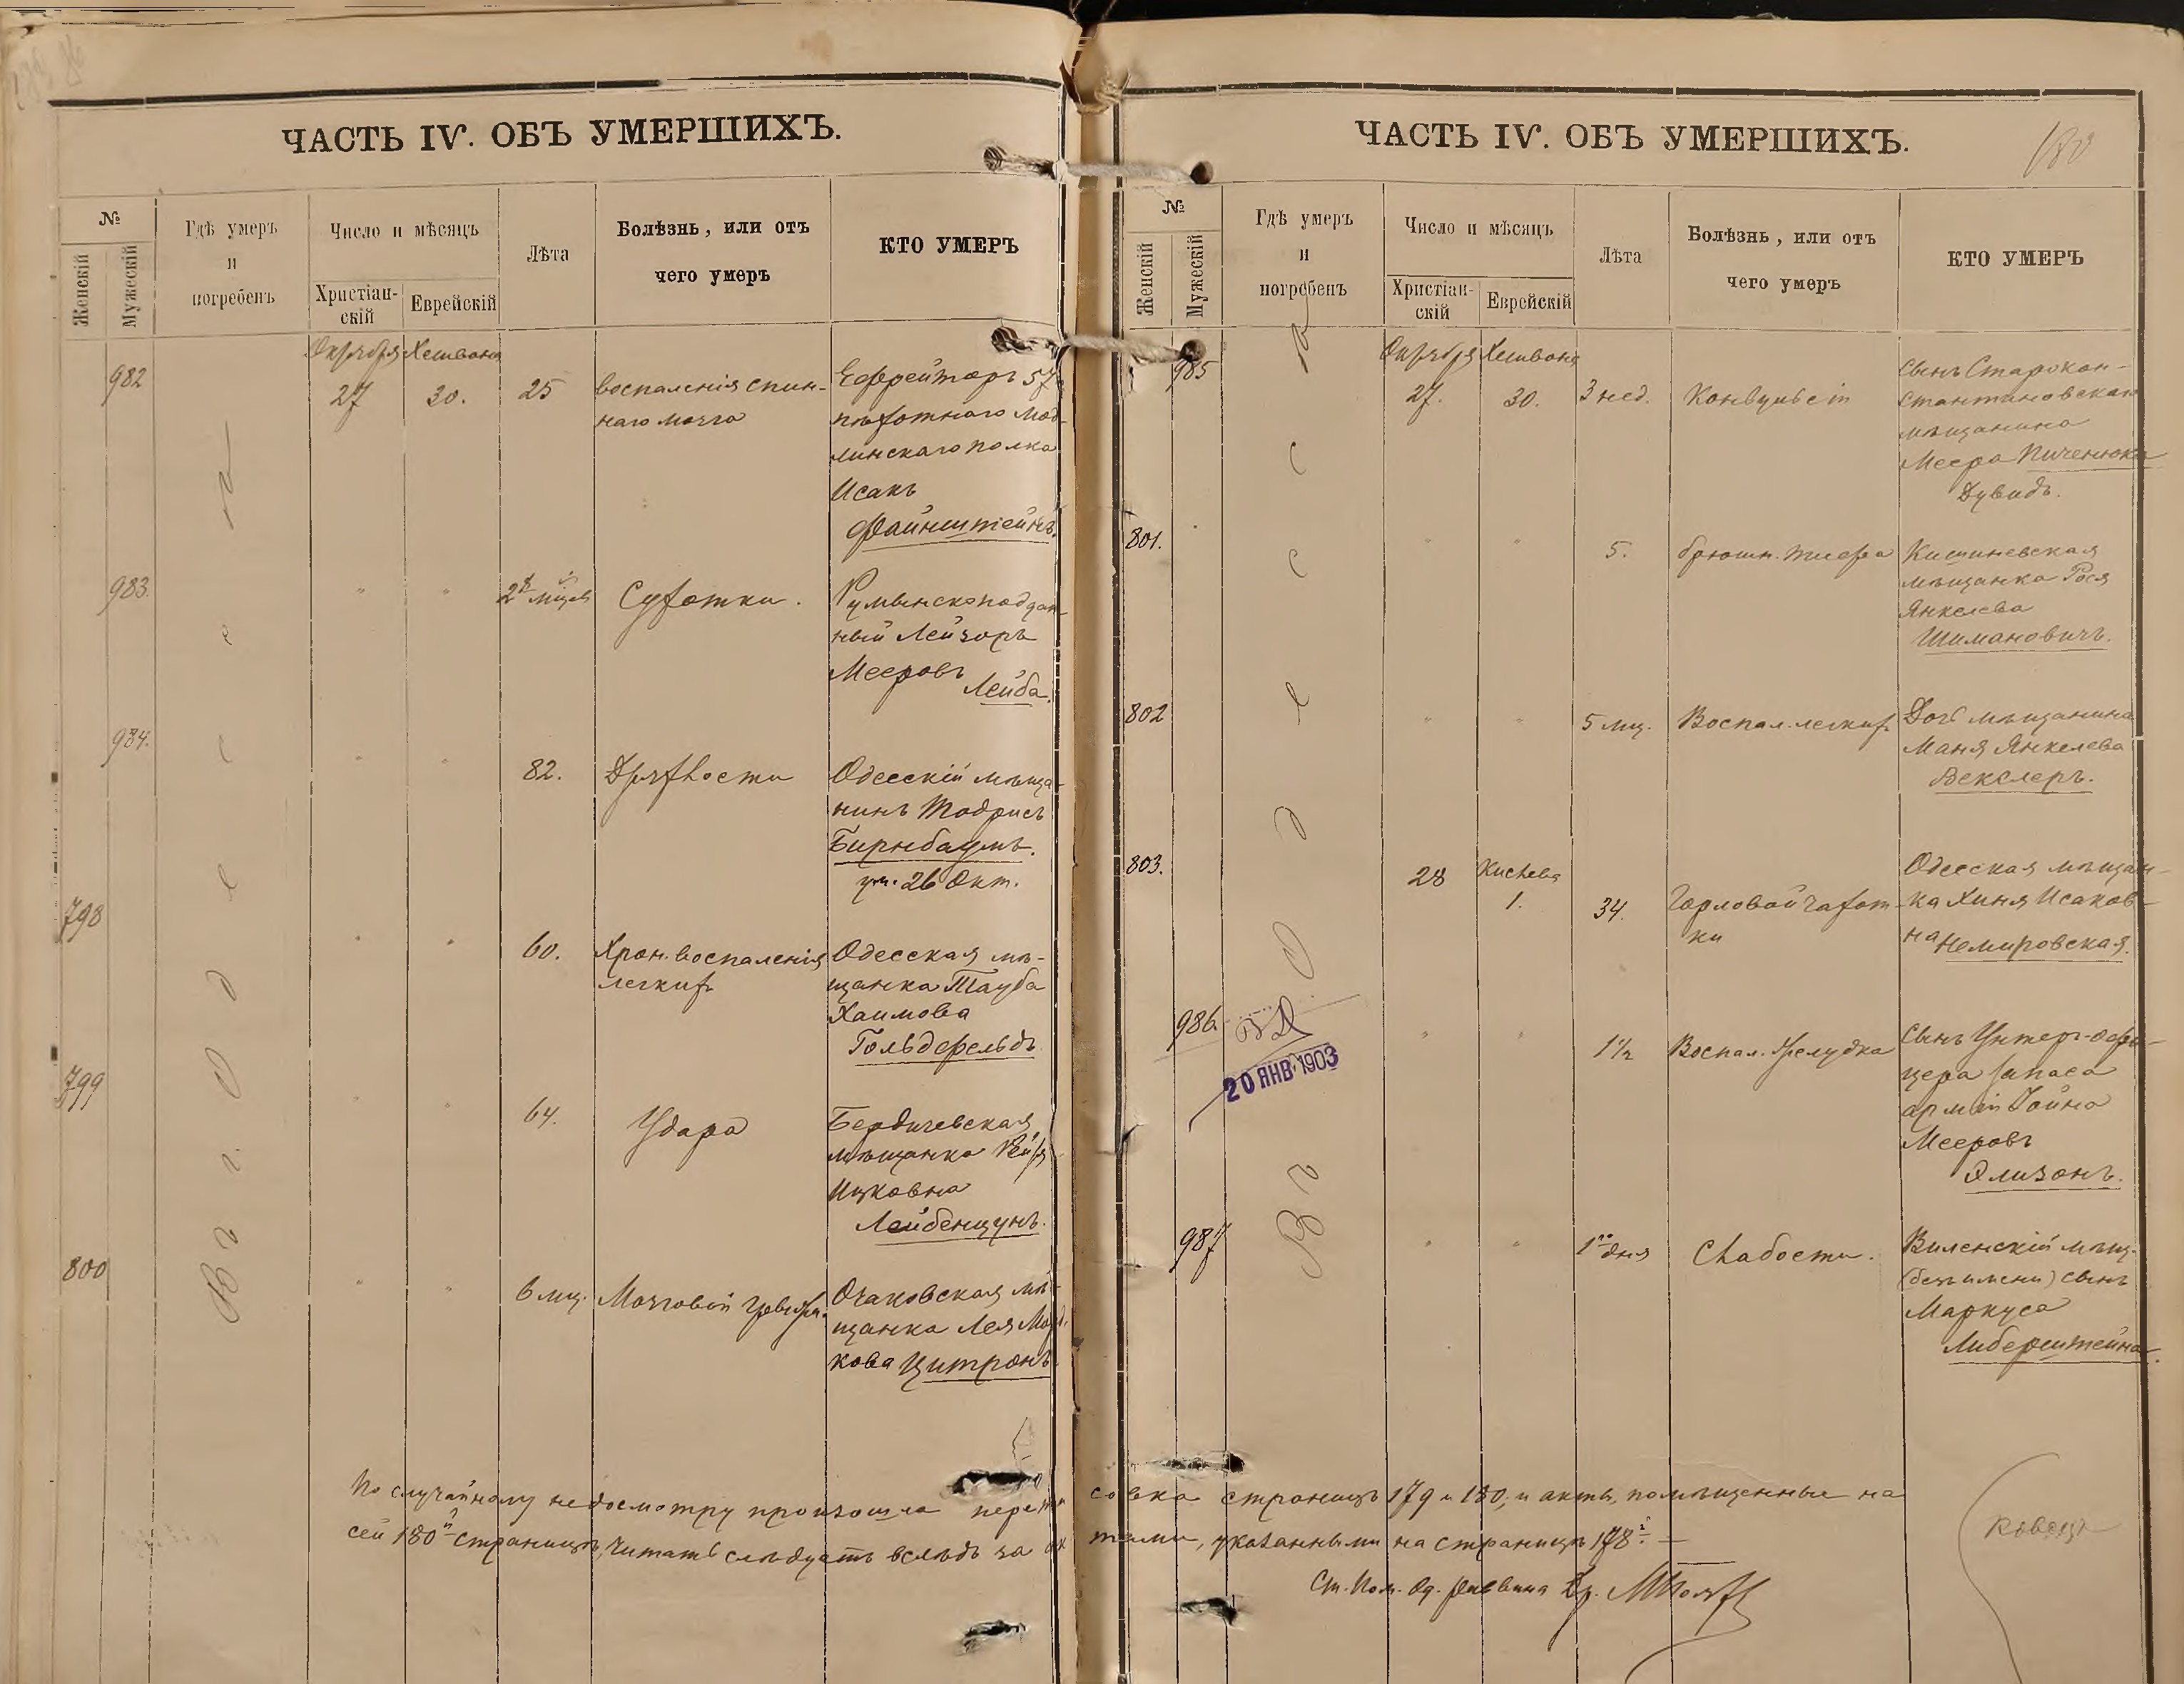 ЧАСТЬ IV. ОБЪ УМЕРШИХЪ.
№
Женскій
Мужескій
Гдѣ умеръ
и
погребенъ
Число и мѣсяцъ
Христіан-
скій
Еврейскій
Лѣта
Болѣзнь, или отъ
чего умеръ
КТО УМЕРЪ
Въ г. Одессѣ
Октября Хешвона
982
27
30.
25
воспаленія спин-
наго мозга
Ефрейторъ 57
пѣхотнаго Мод-
линскаго полка
Исакъ
Файнштейнъ.
983.
"
"
Сухотки.
Румынскоподдан-
ный Лейзоръ
Мееровъ
Лейба.
984.
"
"
82.
Дряхлости
Одесскій мѣща-
нинъ Тодрисъ
Бирнбаумъ.
ум. 26 Окт.
798
"
"
60.
Хрон. воспаленія
легкихъ
Одесская мѣ-
щанка Тауба
Хаимова
Гольдфельдъ
799
"
"
64.
Удара
Бердичевская
мѣщанка
Ицковна
Лейбенцунъ.
800
"
"
6 мц.
Мозговой
Очаковская мѣ-
щанка Лея
кова Цитронъ
ЧАСТЬ IV. ОБЪ УМЕРШИХЪ.
180
№
Женскій
Мужескій
Гдѣ умеръ
и
погребенъ
Число и мѣсяцъ
Христіан-
скій
Еврейскій
Лѣта
Болѣзнь, или отъ
чего умеръ
КТО УМЕРЪ
Въ г. Одессѣ
Октября Хешвона
985
27.
30.
3 нед.
Конвульсіи
Сынъ Старокон-
стантиновскаго
мѣщанина
Меера Пиченюка
Дувидъ.
801.
"
"
5.
брюшн. тифа
Кишиневская
мѣщанка Рося
Янкелева
Шимановичъ.
802
"
"
5 мц.
Воспал. легкихъ
Дочь мѣщанина
Маня Янкелева
Векслеръ.
803.
28
Кислева
1.
34.
Горловой чахот-
ки
Одесская мѣщан-
ка Хиня Исаков-
на Немировская.
986.
20 ЯНВ. 1903
"
"
1½
Воспал. желудка
Сынъ Унтеръ-офи-
цера запаса
арміи Іойна
Мееровъ
Элизонъ.
987
"
"
1 дня
Слабости.
Виленскій мѣщ.
(безъ имени) сынъ
Маркуса
Либерштейна.
По случайному недосмотру произошла совка страницъ 179 и 180, и акты, помѣщенные на
сей 180й страницѣ, читать слѣдуетъ вслѣдъ за тами, указанными на страницѣ 178й. —
Ст. Пом. Од. Раввина Др.